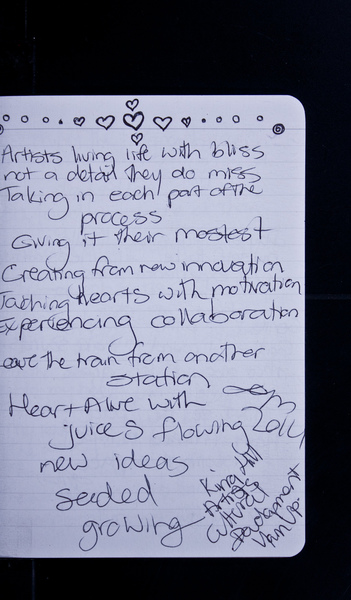 Artists living life with bliss
not a detail they do miss
Taking in each part of the
process
Giving it their mostest
Creating from new innovation
Touching hearts with motivation
Experiencing collaboration
Leave the train from another
station
Heart Alive with
juices flowing
new ideas
seeded
growing
2014
King Hill
Artists
Cultural